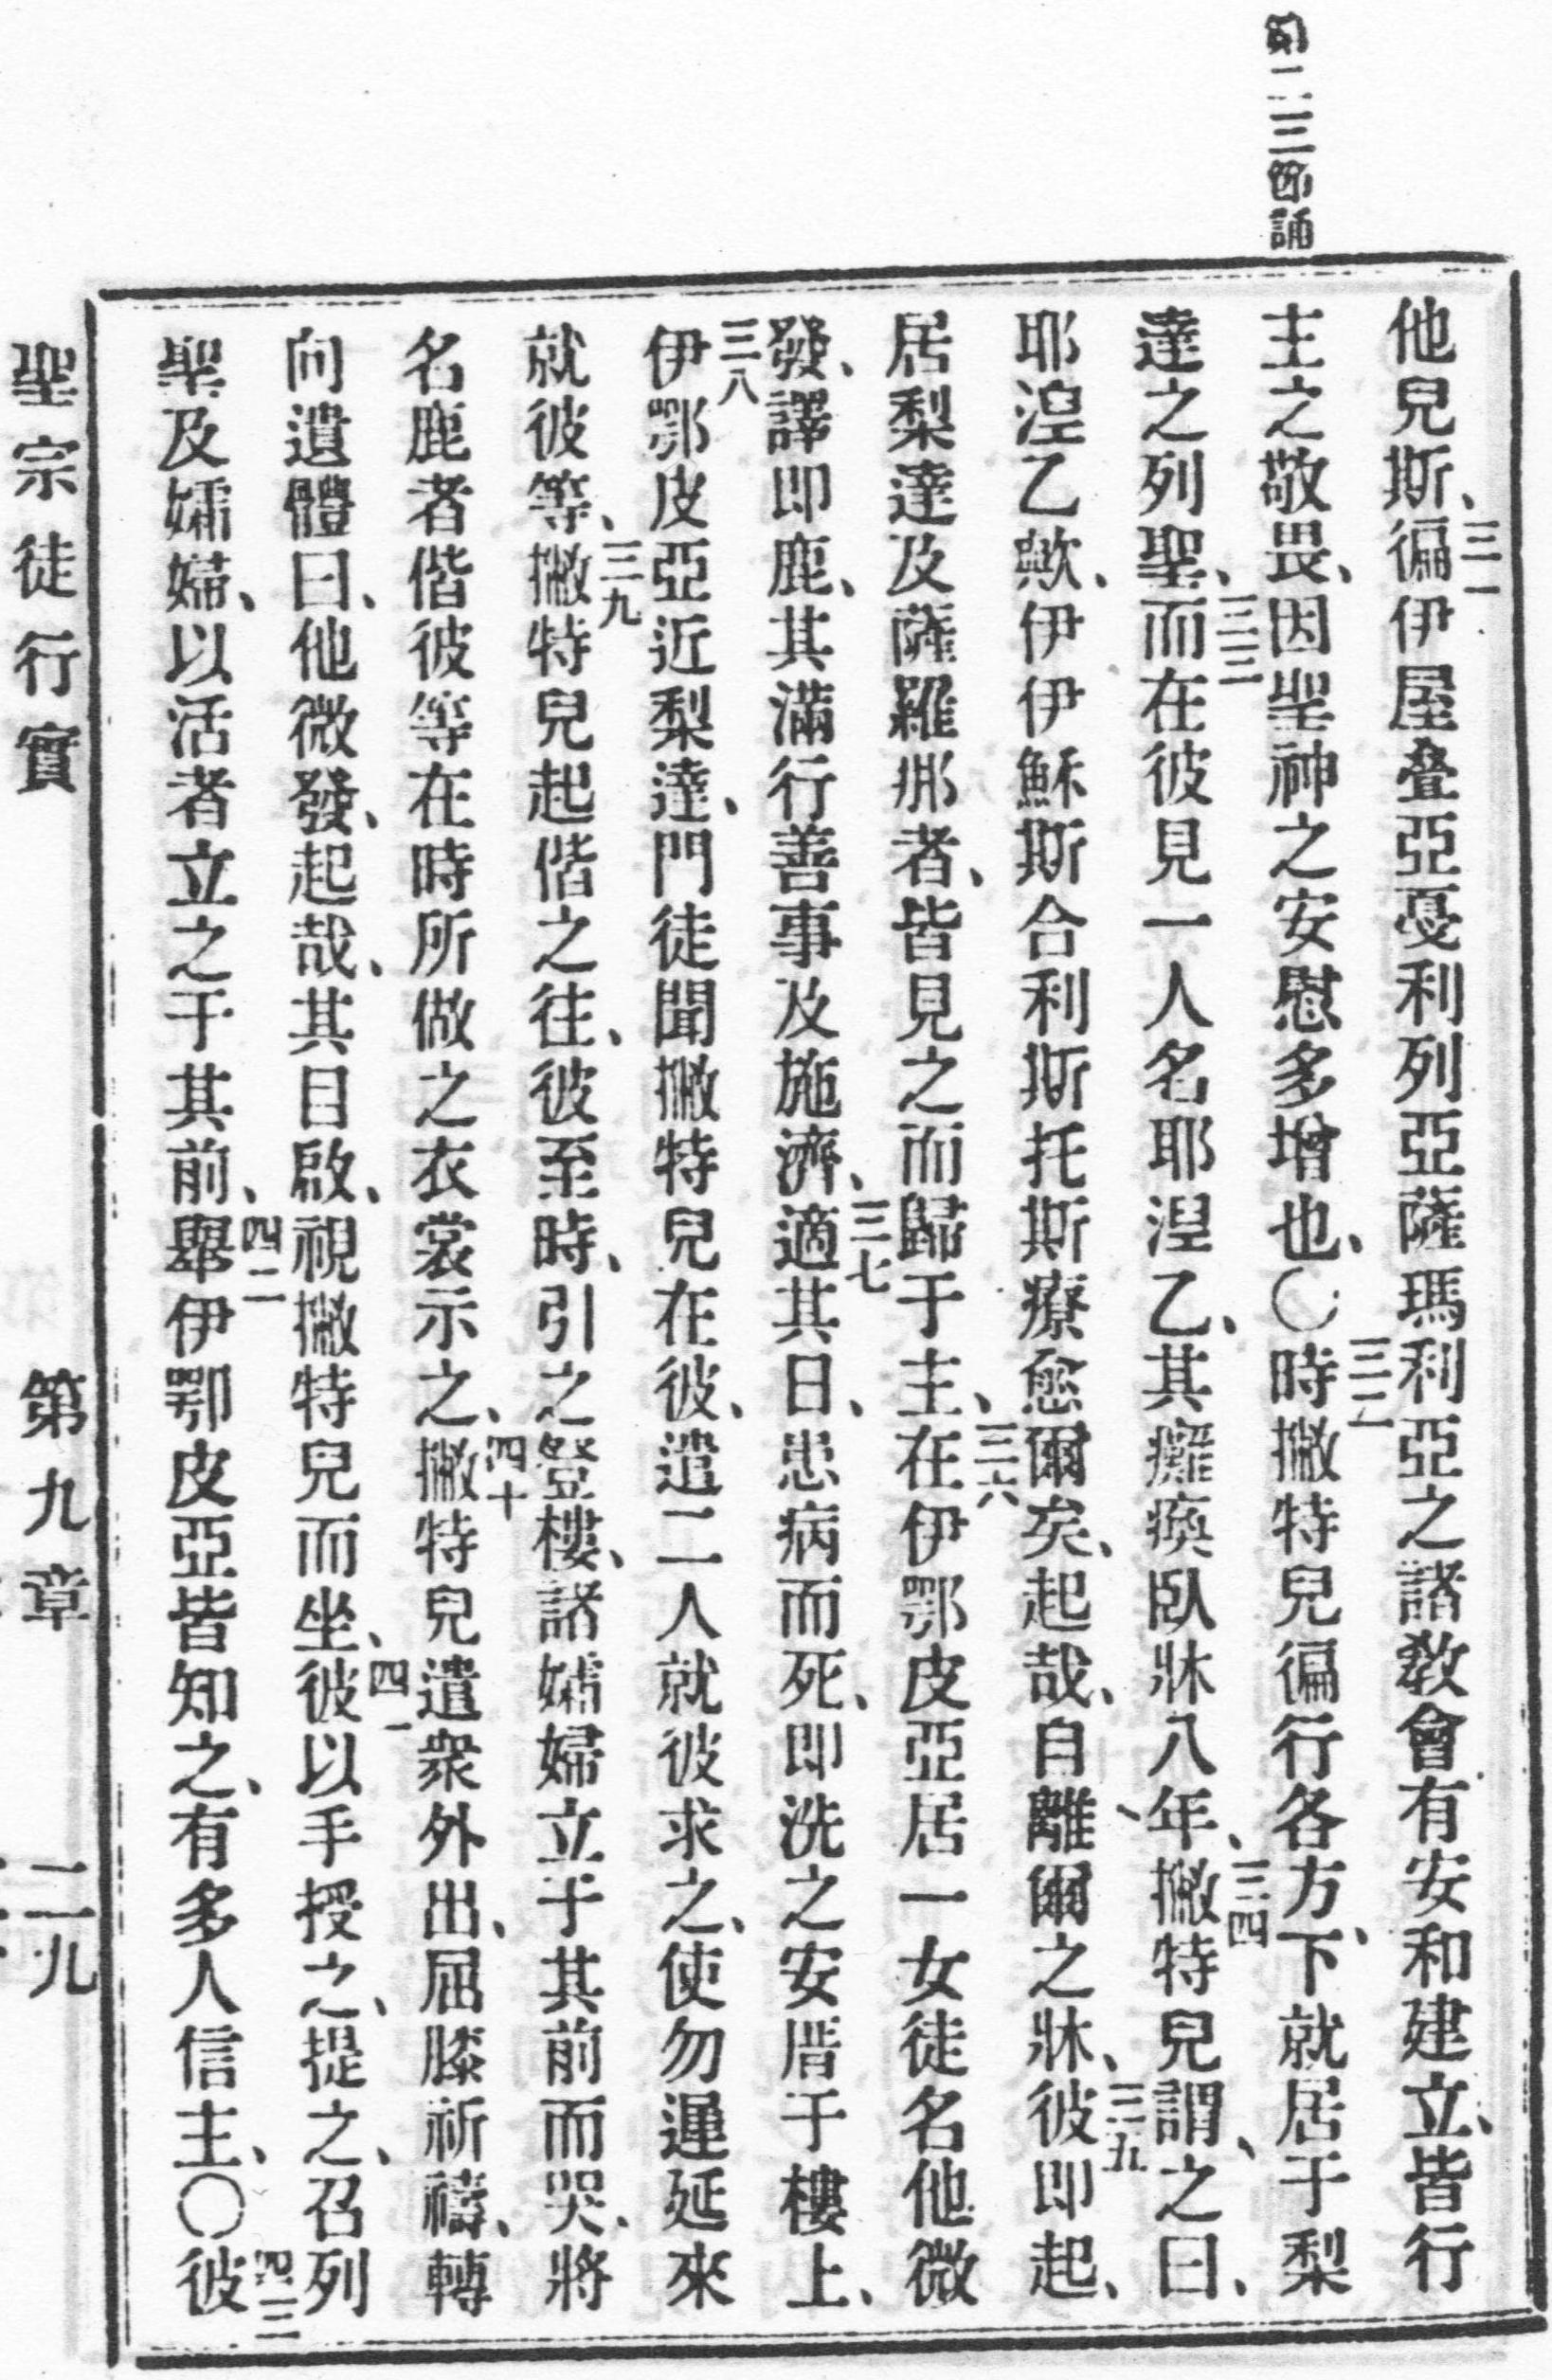 第二三節誦
他兒斯、三一徧伊屋叠亞戞利列亞薩瑪利亞之諸教會有安和建立、皆行
主之敬畏、因聖神之安慰多增也、〇三二時撇特兒徧行各方、下就居于梨
達之列聖、三三而在彼見一人名耶湼乙、其癱瘓臥牀八年、三四撇特兒謂、之曰、
耶湼乙歟、伊伊穌斯合利斯托斯療愈爾矣、起哉、自離爾之牀、三五彼即起、
居梨達及薩羅那者、皆見之而歸于主、三六在伊鄂皮亞居一女徒名他微
發、譯即鹿、其滿行善事及施濟、三七適其日、患病而死、即洗之安厝于樓上、
三八伊鄂皮亞近梨達、門徒聞撇特兒在彼、遣二人就彼求之、使勿遲延來
就彼等、三九撇特兒起偕之往、彼至時、引之登樓、諸孀婦立于其前而哭、將
名鹿者偕彼等在時所做之衣裳示之、四十撇特兒遣衆外出、屈膝祈禱、轉
向遺體曰、他微發、起哉、其目啟、視撇特兒而坐、四一彼以手授之、提之、召列
聖及孀婦、以活者立之于其前、四二舉伊鄂皮亞皆知之、有多人信主、〇四三彼
聖宗徒行實 第九章 二九